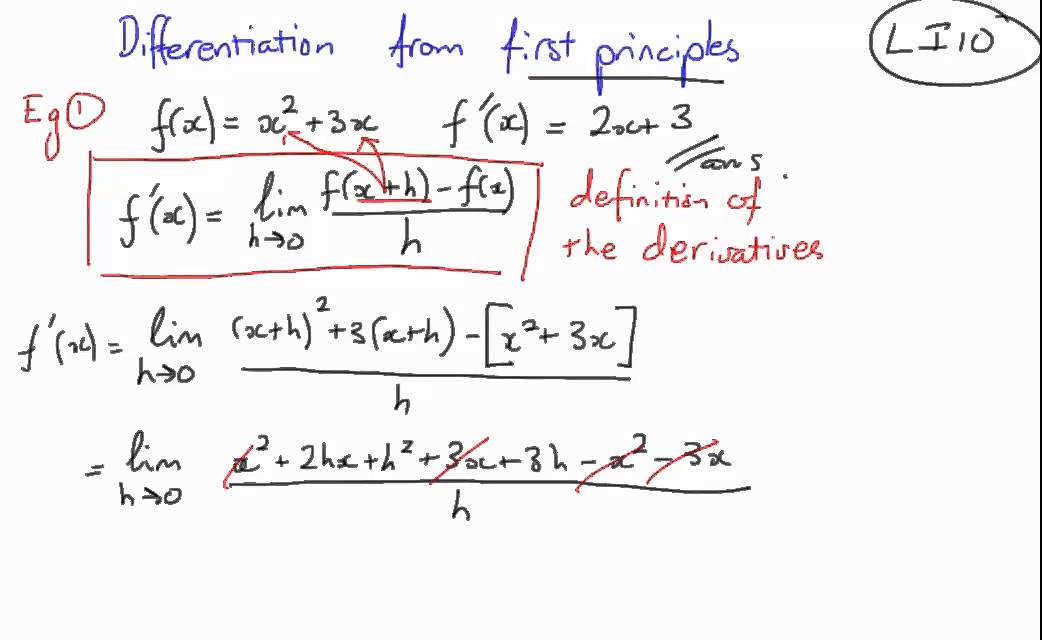 Differentiation from first principles
LI10
Eg ① f(x) = x² + 3x f'(x) = 2x + 3
ans
f'(x) = lim h→0 f(x+h) - f(x) / h
definition of
the derivatives
f'(x) = lim h→0 (x+h)² + 3(x+h) - [x² + 3x] / h
= lim h→0 x² + 2hx + h² + 3x + 3h - x² - 3x / h